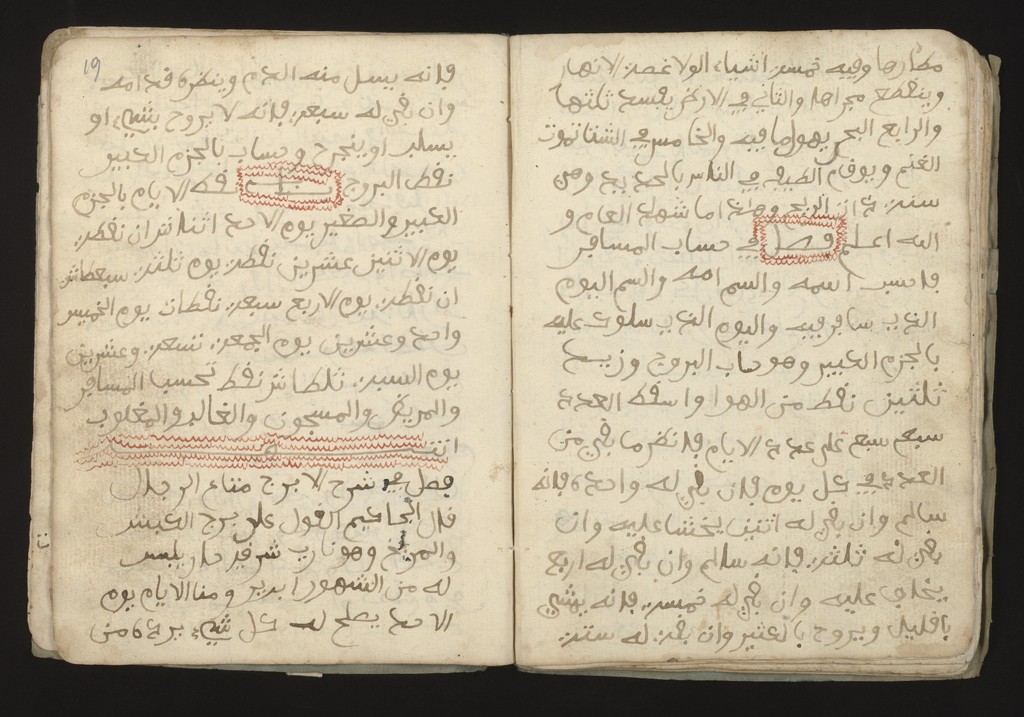 مطارها وفيه خمسة اشياء الولا غصة الانهار
وينقطع مجراها والثاني في الارض يفسد ثلثها
والرابع البحر يهول ما فيه والخامس في الشتا تموت
الغنم ويوفام الطيف في الناس بالجديد ومن
الريح اما شهلة العام و
الله اعلم فصل في حساب المسافر
فاحسب اسمه واسم امه واسم اليوم
الذي سافر فيه واليوم الذي سلوك عليه
بالجزم الكبير وهو حساب البروج وزيد
ثلثين نقط من الهوا واسقط العدد
سبع سبع على عدد الايام فانظر ما بقي من
العدد في كل يوم فان بقي له واحد فانه
سالم وان بقي له اثنين يخشا عليه وان
بقي له ثلثة فانه سالم وان بقي له اربع
يخاف عليه وان بقي له خمسة فانه يمشي
باقليل ويروح بالكثير وان بقى له ستة
19
فانه يسل منه الدم وينظره قدامه
وان بقي له سبعة فانه لا يروح بشيء او
يسلب او ينجرح وحساب بالجزم الكبير
نقط البروج نقط الايام بالجزم
الكبير والصغير يوم الاحد اثنا نقطة
يوم الاثنين عشرين نقطة يوم ثلثة سبعطاش
ان نقطة يوم الاربع سبعة نقطات يوم الخميس
واحد وعشرين يوم الجمعة تسعة وعشرين
يوم السبت ثلطاش نقط تحسب المسافر
والمريض والمسجون والغالب والمغلوب
انتهى
فصل في شرح الابرج متاع الرجال
قال الحكيم القول على برج الكبش
والمريخ وهو ناري شرقي حار يابس
له من الشهور ابرير ومنالايام يوم
الاحد يصلح له كل شيء يريده من